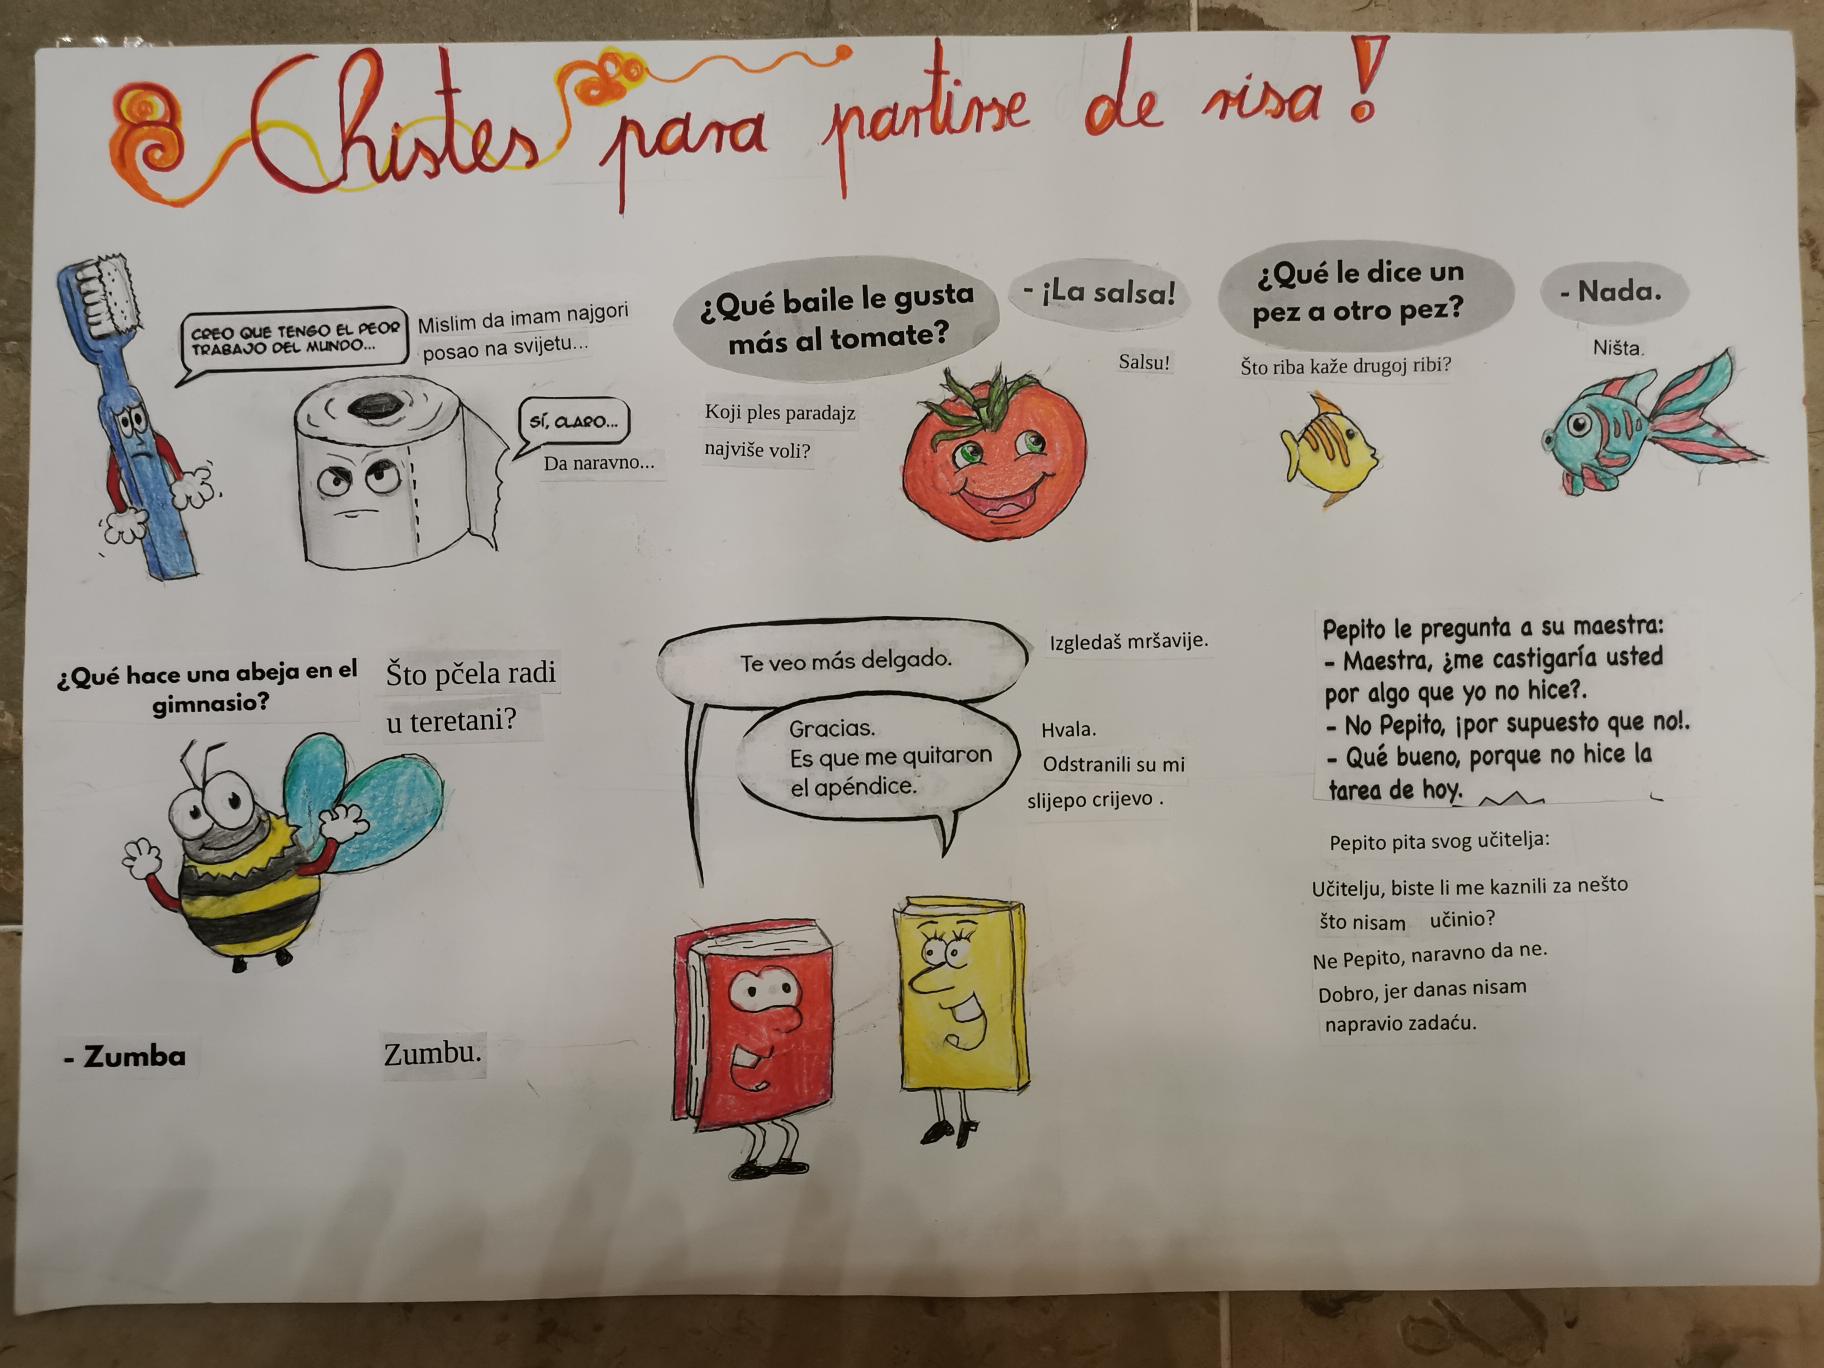 Chistes para partirse de risa!
CREO QUE TENGO EL PEOR
TRABAJO DEL MUNDO...
Mislim da imam najgori
posao na svijetu...
SÍ, CLARO...
Da naravno...
¿Qué baile le gusta
más al tomate?
- ¡La salsa!
Koji ples paradajz
najviše voli?
Salsu!
¿Qué le dice un
pez a otro pez?
- Nada.
Što riba kaže drugoj ribi?
Ništa.
¿Qué hace una abeja en el
gimnasio?
Što pčela radi
u teretani?
- Zumba
Zumbu.
Te veo más delgado.
Izgledaš mršavije.
Gracias.
Es que me quitaron
el apéndice.
Hvala.
Odstranili su mi
slijepo crijevo .
Pepito le pregunta a su maestra:
- Maestra, ¿me castigaría usted
por algo que yo no hice?.
- No Pepito, ¡por supuesto que no!.
- Qué bueno, porque no hice la
tarea de hoy.
Pepito pita svog učitelja:
Učitelju, biste li me kaznili za nešto
što nisam učinio?
Ne Pepito, naravno da ne.
Dobro, jer danas nisam
napravio zadaću.